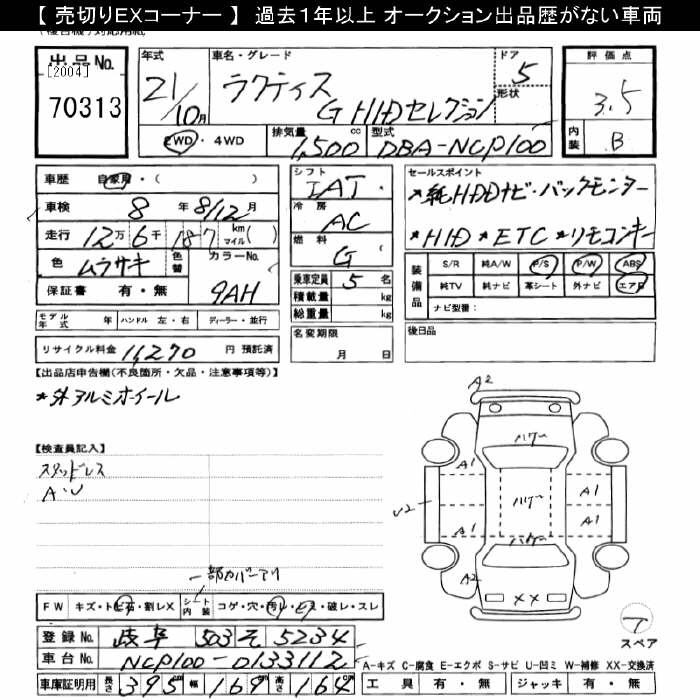 【 売切りEXコーナー 】 過去１年以上 オークション出品歴がない車両
出品No. [2004] 70313
年式 21/10月
車名・グレード ラクティス G HIDセレクション
ドア 5 形状
評価点 3.5
内装 B
2WD・4WD
排気量 1,500 cc
型式 DBA-NCP100
車歴 自家用・( )
車検 8 年 8/12 月
走行 12万 6千 187 km マイル( )
色 ムラサキ 色替 カラーNo. 9AH
保証書 有・無
シフト IAT
冷房 AC
燃料 G (
乗車定員 5 名
積載量 kg
総重量 kg
名変期限 月 日
セールスポイント
*純HDDナビ・バックモニター
*HID *ETC *リモコンキー
装備品 S/R 純A/W P/S P/W ABS
純TV 純ナビ 革シート 外ナビ エアB
ナビ型番:
後日品
モデル年式 年 ハンドル 左・右 ディーラー・並行
リサイクル料金 11,270 円 預託済
【出品店申告欄(不良箇所・欠品・注意事項等)】
*外アルミホイール
【検査員記入】
スタッドレス
A・U
一部カバーアリ
FW キズ・トビ石・割レX シート内装 コゲ・穴・汚レ・ヒズミ・破レ・スレ
登録No. 岐阜 503 そ 5234
車台No. NCP100-0133112
車庫証明用 長さ 395 幅 169 高さ 164
A2
ハゲ
A1
A1
U2
ハゲ
A1
A1
ハゲ
A2
XX
スペア
A-キズ C-腐食 E-エクボ S-サビ U-凹ミ W-補修 XX-交換済
工具 有・無 ジャッキ 有・無